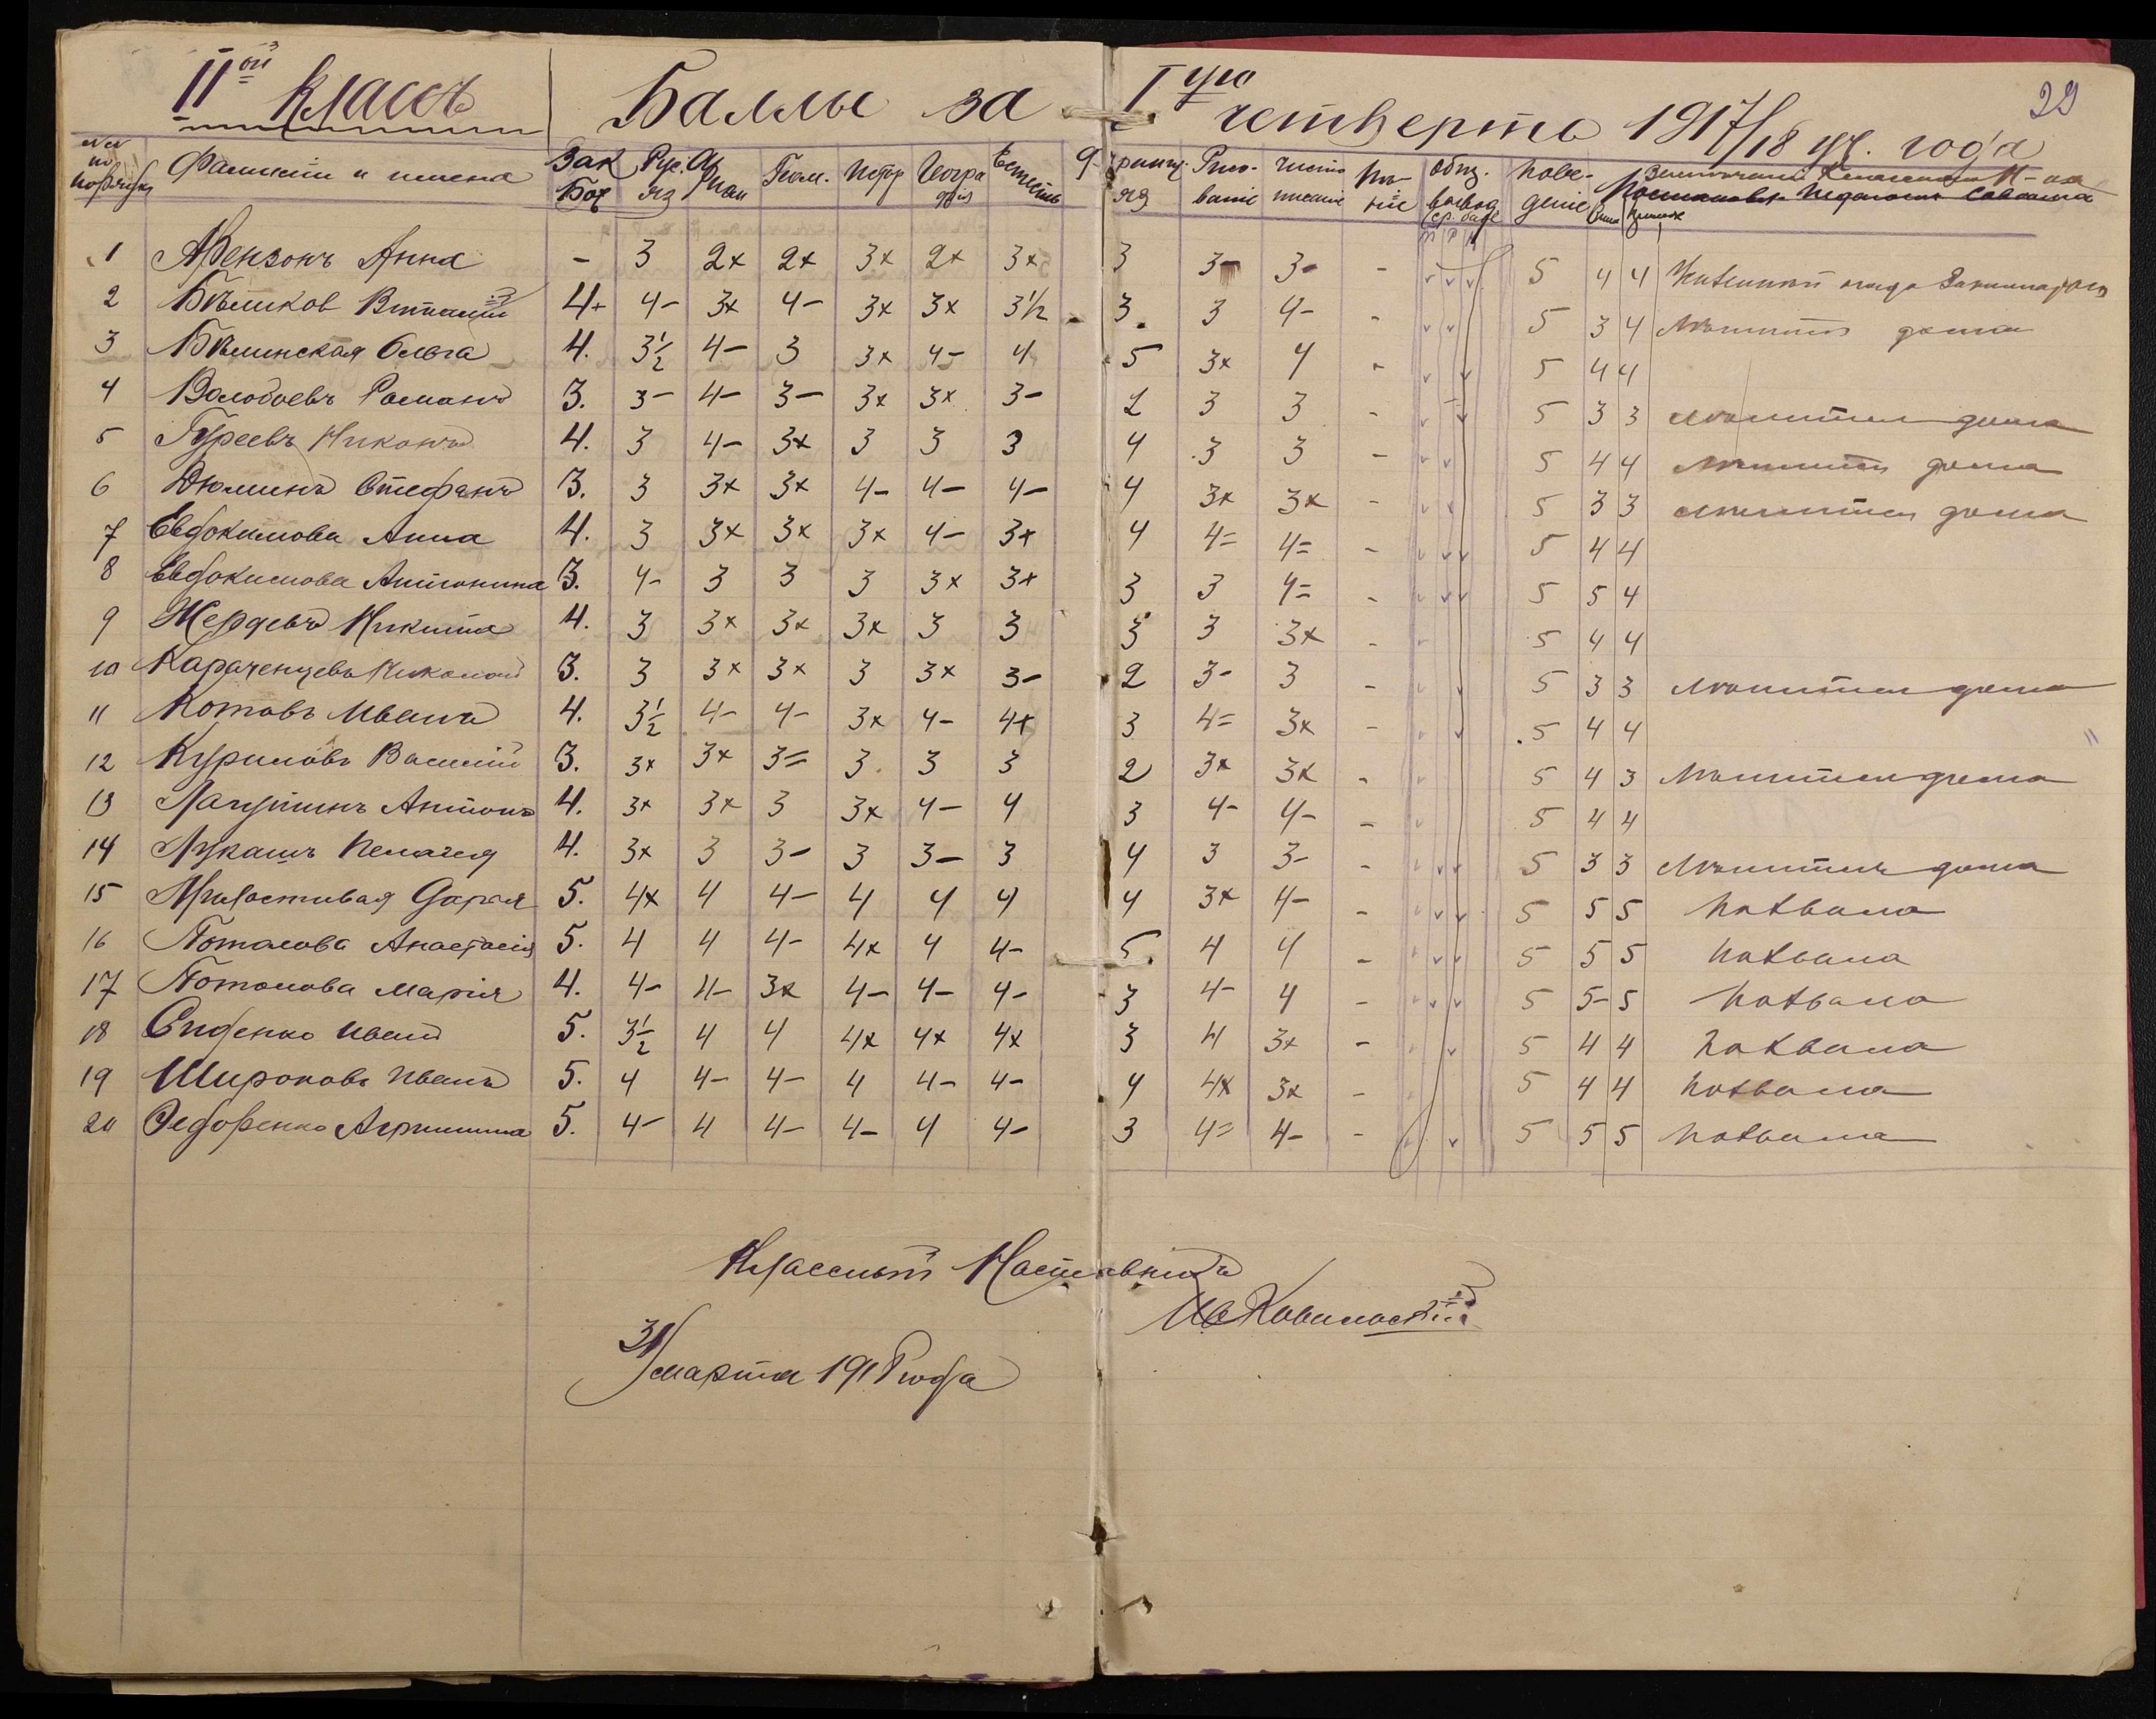 IIой Классъ Баллы за Iую четверть 1917/18 уч. года 29
№№ по порядку Фамиліи и имена Зак Бож Рус. яз Геом. Истор Геогра фія Франц. яз Рисо- ваніе Чисто писаніе Пѣ- ніе Общ. вывод ср. балл Пове- деніе
1 Абензонъ Анна - 3 2+ 2+ 3+ 2+ 3+ 3 3- 3- - 5 4 4
2 Бѣликов Виталій 4+ 4- 3+ 4- 3+ 3+ 3½ 3 3 4- - 5 3 4 дома
3 Бѣлинская Ольга 4. 3½ 4- 3 3+ 4- 4 5 3+ 4 - 5 4 4
4 Волобоевъ Романъ 3. 3- 4- 3- 3+ 3+ 3- 2 3 3 - 5 3 3 дома
5 Гуреевъ Никонъ 4. 3 4- 3+ 3 3 3 4 3 3 - 5 4 4 дома
6 Дюминъ Стефанъ 3. 3 3+ 3+ 4- 4- 4- 4 3+ 3+ - 5 3 3 дома
7 Евдокимова Анна 4. 3 3+ 3+ 3+ 4- 3+ 4 4= 4= - 5 4 4
8 Евдокимова Антонина 3. 4- 3 3 3 3+ 3+ 3 3 4= - 5 5 4
9 Жердевъ Никита 4. 3 3+ 3+ 3+ 3 3 3 3 3+ - 5 4 4
10 Караченцевъ Николай 3. 3 3+ 3+ 3 3+ 3- 2 3- 3 - 5 3 3 дома
11 Котовъ Иванъ 4. 3½ 4- 4- 3+ 4- 4+ 3 4= 3+ - 5 4 4
12 Куриловъ Василій 3. 3+ 3+ 3= 3 3 3 2 3+ 3+ - 5 4 3 дома
13 Лагутинъ Антонъ 4. 3+ 3+ 3 3+ 4- 4 3 4- 4- - 5 4 4
14 Лукашъ Пелагея 4. 3+ 3 3- 3 3- 3 4 3 3- - 5 3 3 дома
15 Милостивая Дарья 5. 4+ 4 4- 4 4 4 4 3+ 4- - 5 5 5 похвала
16 Потапова Анастасія 5. 4 4 4- 4+ 4 4- 5 4 4 - 5 5 5 похвала
17 Потапова Марія 4. 4- 4- 3+ 4- 4- 4- 3 4- 4 - 5 5- 5 похвала
18 Сиденко Иванъ 5. 3½ 4 4 4+ 4+ 4+ 3 4 3+ - 5 4 4 похвала
19 Широковъ Иванъ 5. 4 4- 4- 4 4- 4- 4 4+ 3+ - 5 4 4 похвала
20 Федоренко Агрипина 5. 4- 4 4- 4- 4 4- 3 4= 4- - 5 5 5 похвала
Классный Наставникъ
31 марта 191 года